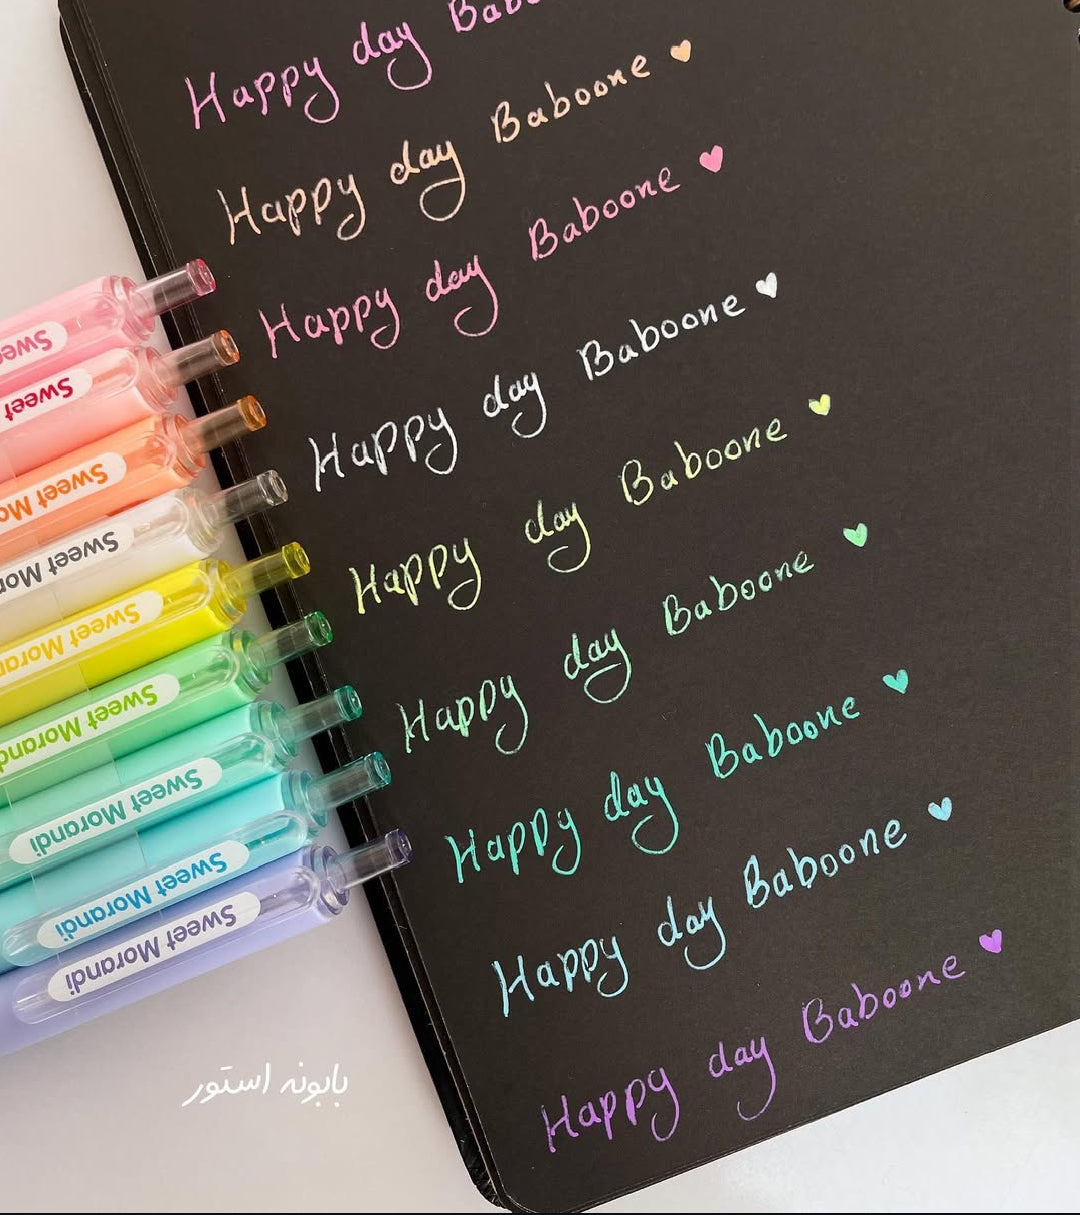 Happy day
Happy day Baboone
Happy day Baboone
Happy day Baboone
Happy day Baboone
Happy day Baboone
Happy day Baboone
Happy day Baboone
Happy day Baboone
Sweet
Sweet
Sweet
Sweet
Sweet Morandi
Sweet Morandi
Sweet Morandi
بابونه استور